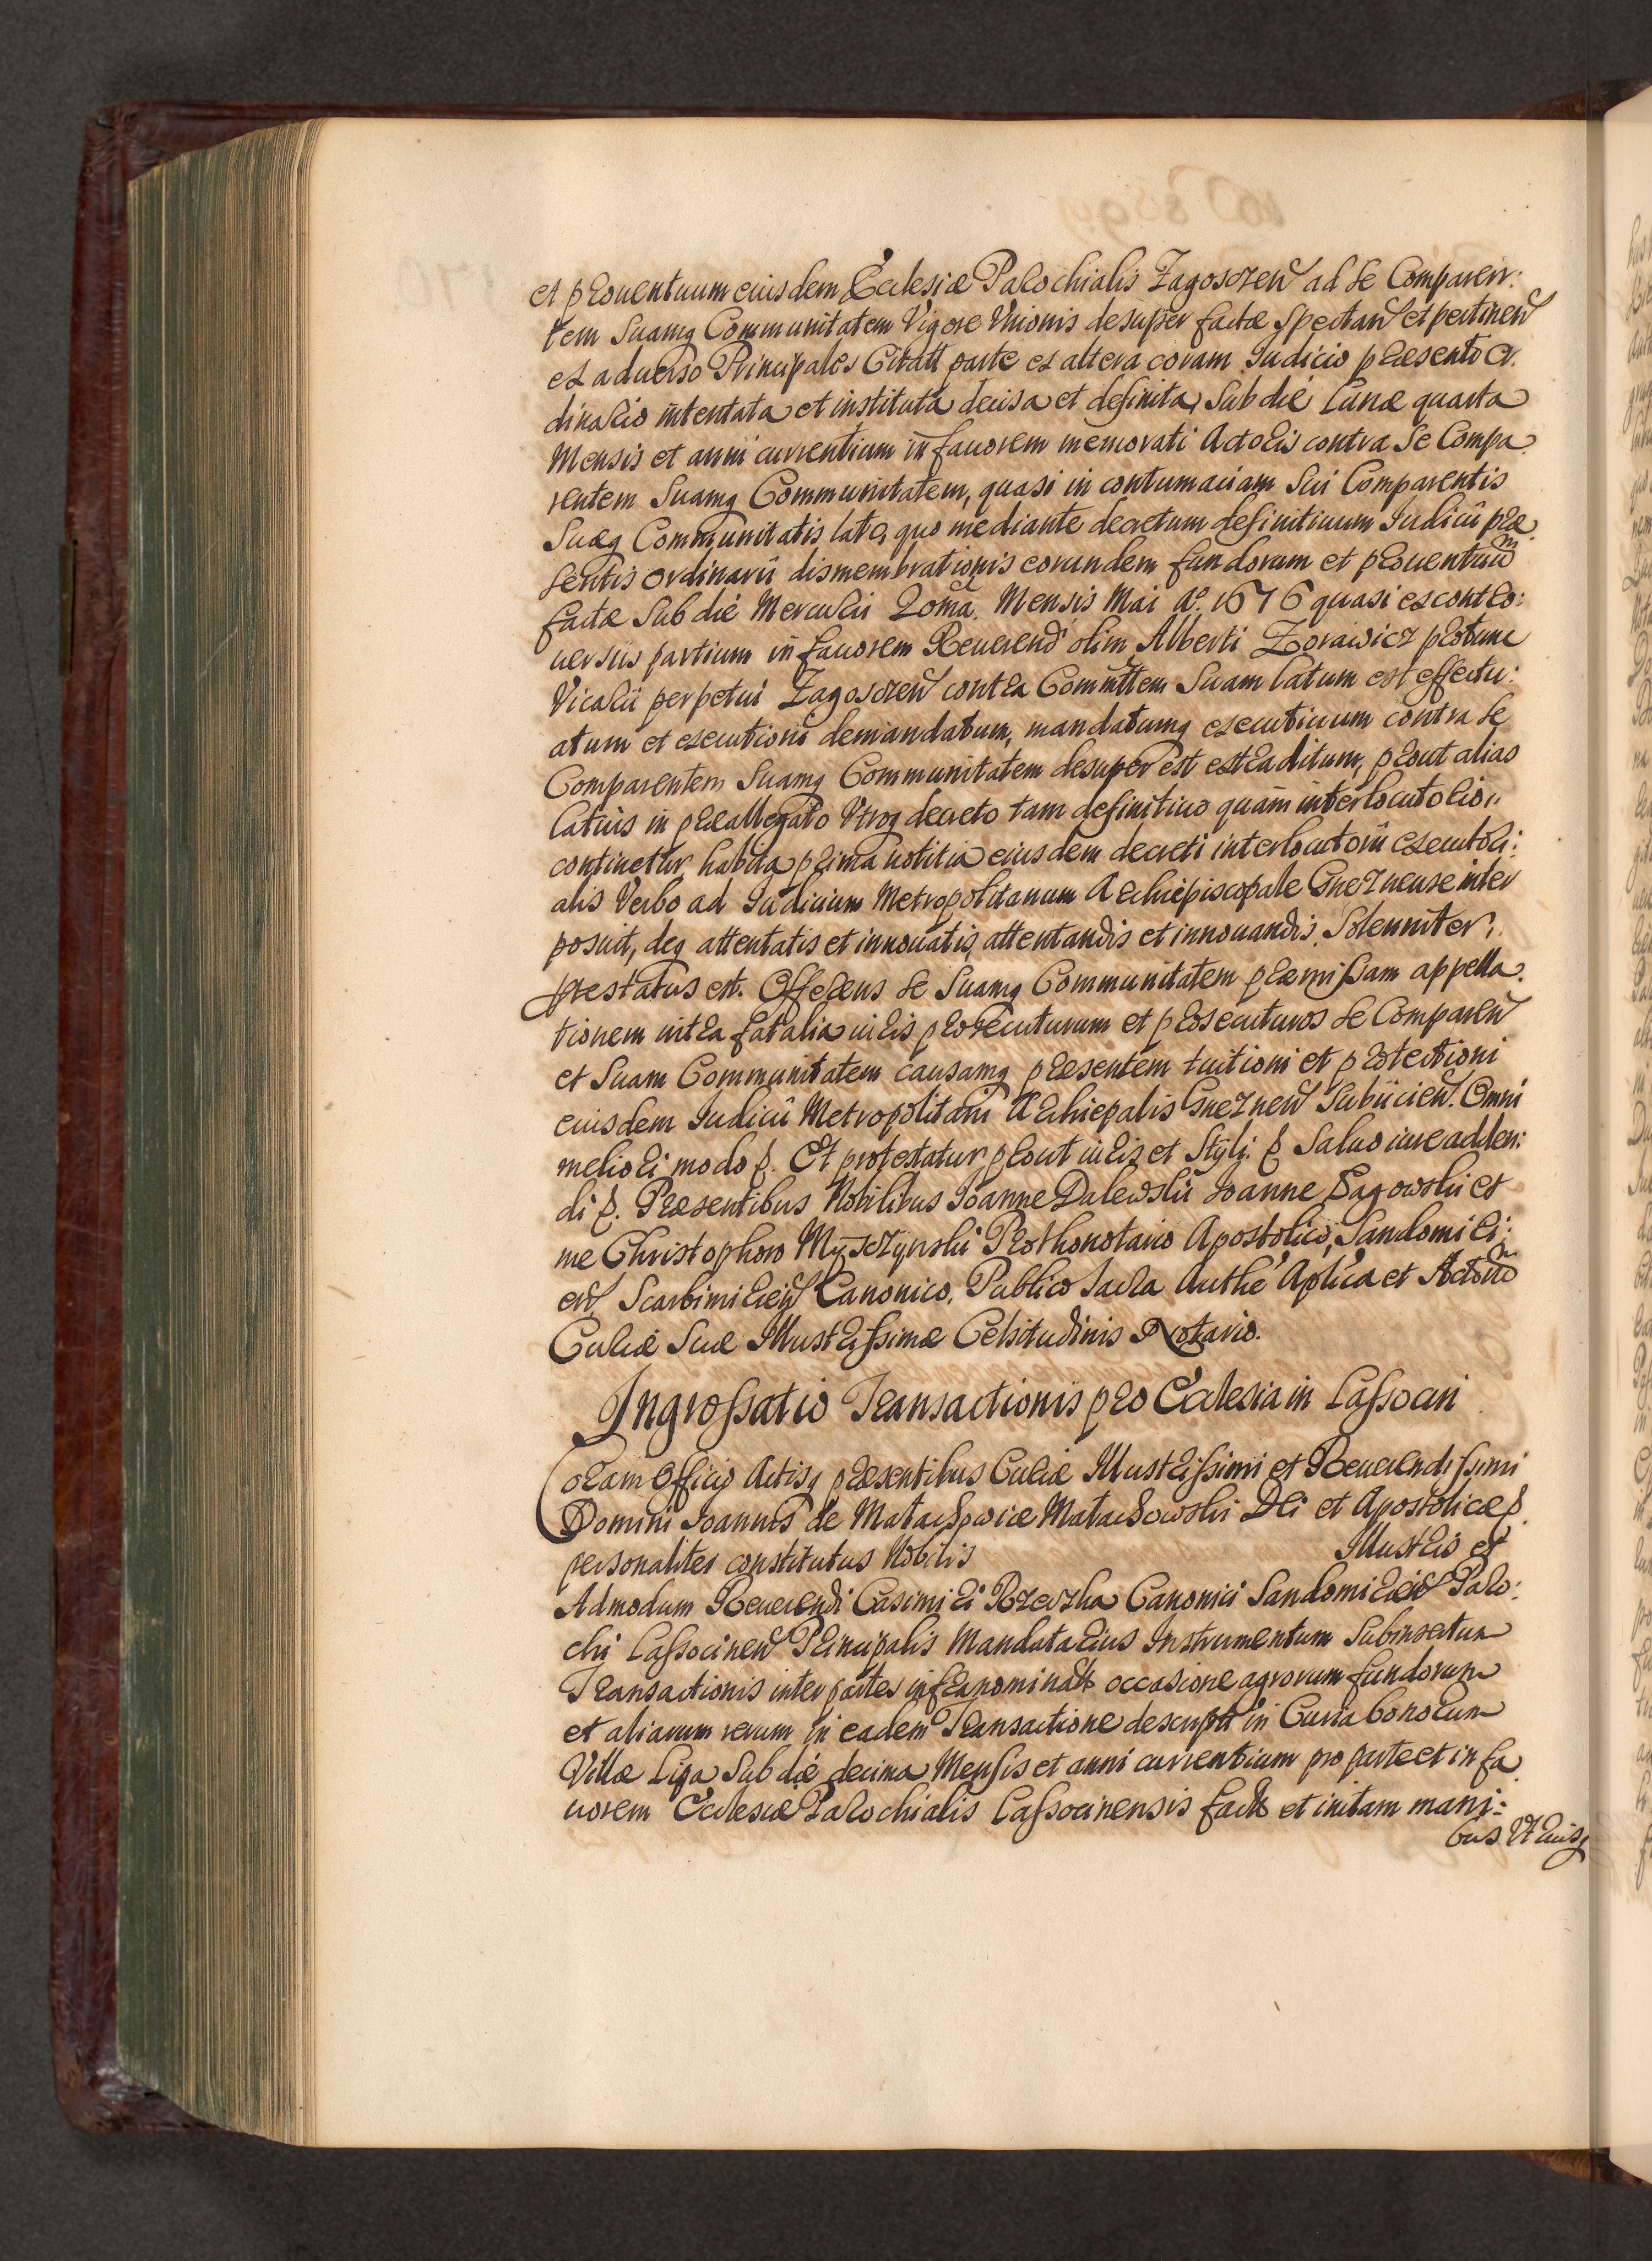 et prouentuum eiusdem Ecclesiæ Parochialis Zagosczeñ ad se Comparen:
tem Suamq Communitatem Vigore Vnionis desuper factæ Spectañ et pertineñ
ex aduerso Principales Citatt parte ex altera coram Iudicio præsenti Or
dinario intentata et instituta decisa et definita, Sub die Lunæ quarta
Mensis et anni currentium in fauorem memorati Actoris contra Se Compa
rentem Suamq Communitatem, quasi in contumaciam Sui Comparentis
Suæq Communitatis lato, quo mediante decretum definitiuum Iudicii præ
sentis Ordinarii dismembrationis eorundem fundorum et prouentuum
factæ Sub die Mercurii 20ma Mensis Mai Ao. 1676 quasi ex contro:
uersiis partium in fauorem Reuerendi olim Alberti Zorawicz protunc
Vicarii perpetui Zagosczeñ contra Comuttem Suam latum est effectu:
atum et executioni demandatum, mandatumq executiuum contra se
Comparentem Suamq Communitatem desuper est extraditum, prout alias
latius in præallegato Vtroq decreto tam definitiuo quàm interlocutorio,,
continetur, habita prima notitia eiusdem decreti interlocutorii executori:
alis Verbo ad Iudicium Metropolitanum Archiepiscopale Gneznense inter
posuit, deq attentatis et innouatis, attentandis et innouandis Solenniter,
ptestatus est. Offerens se Suamq Communitatem præmissam appella
tionem intra fatalia iuris prosecuturum et prosecuturos se Compareñ
et Suam Communitatem causamq præsentem tuitioni et protectioni
eiusdem Iudicii Metropolitani Archiepalis Gnezneñ Subiicieñ. Omni
meliori modo p. Et protestatur prout iuris et Styli p Saluo iure adden:
di p. Præsentibus Nobilibus Ioanne Dalewski Ioanne Pagowski et
me Christophoro Myszczynski Prothonotario Apostolico, Sandomiri:
eñ, Scarbimirieñ Canonico, Publico Sacra Authe Aplica et Actorum
Curiæ Suæ Illustrissimæ Celsitudinis Notario.
Ingrossatio Transactionis pro Ecclesia in Lassocin
Coram Officio Actisq præsentibus Curiæ Illustrissimi et Reuerendissimi
Domini Ioannis de Małachowice Małachowski Dei et Apostolicæ p.
personaliter constitutus Nobilis Illustris et
Admodum Reuerendi Casimiri Rzeczka Canonici Sandomirieñ Paro:
chi Lassocineñ Principalis Mandatarius Instrumentum Subinsertum
Transactionis inter partes infranominatt occasione agrorum fundorum
et aliarum rerum in eadem Transactione descriptt in Curia bonorum
Villæ Lipa Sub die decima Mensis et anni currentium pro parte et in fa
uorem Ecclesiæ Parochialis Lassocinensis factt et initam mani:
bus Vtriusq